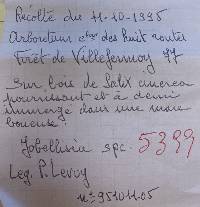 Récolté du 11-10-1995
Arboretum des huit routes
Forêt de Villefermoy 77
Sur bois de Salix
pourrissant et à demi
immergé dans une mare
boueuse.
Jobellisia spc. 5399
Leg. P. Leroy
n° 951011.05